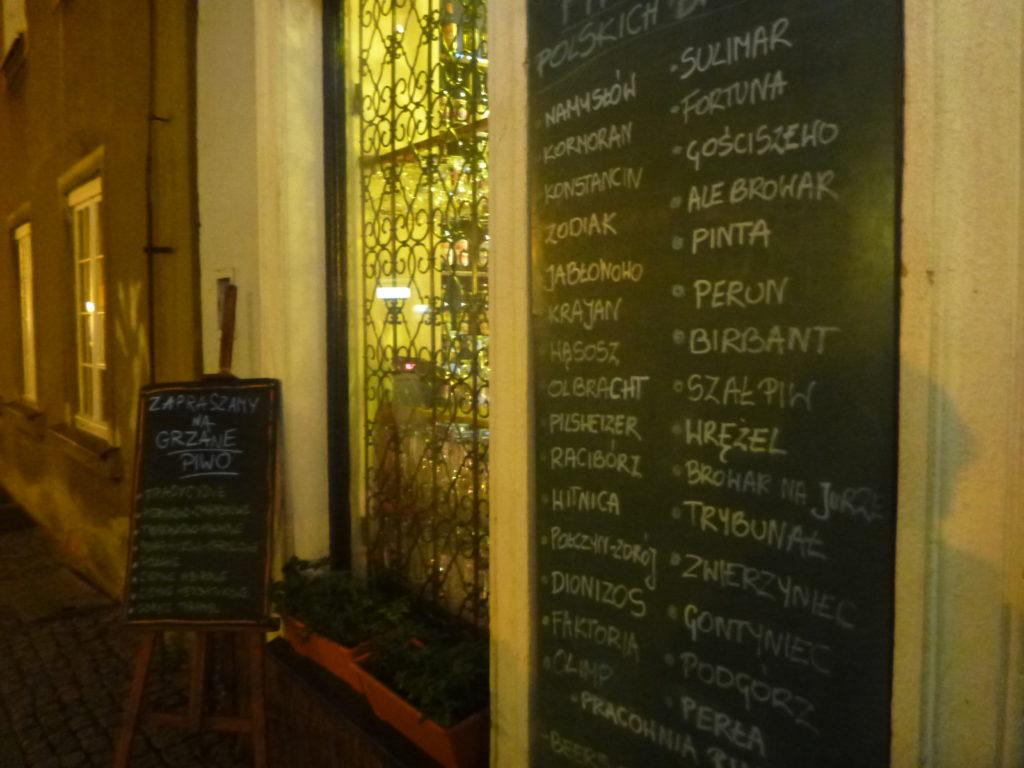 ZAPRASZAMY
NA
GRZANE
PIWO
POLSKICH
NAMYSŁÓW
KORMORAN
KONSTANCIN
ZODIAK
JABŁONOWO
KRAJAN
WĄSOSZ
OLBRACHT
PILSWEIZER
RACIBÓRZ
WITNICA
POŁCZYN-ZDRÓJ
DIONIZOS
FAKTORIA
OLIMP
PRACOWNIA
BEERS
SULIMAR
FORTUNA
GOŚCISZEWO
ALEBROWAR
PINTA
PERUN
BIRBANT
SZAŁPIW
WRĘŻEL
BROWAR NA JURZE
TRYBUNAŁ
ZWIERZYNIEC
GONTYNIEC
PODGÓRZ
PERŁA